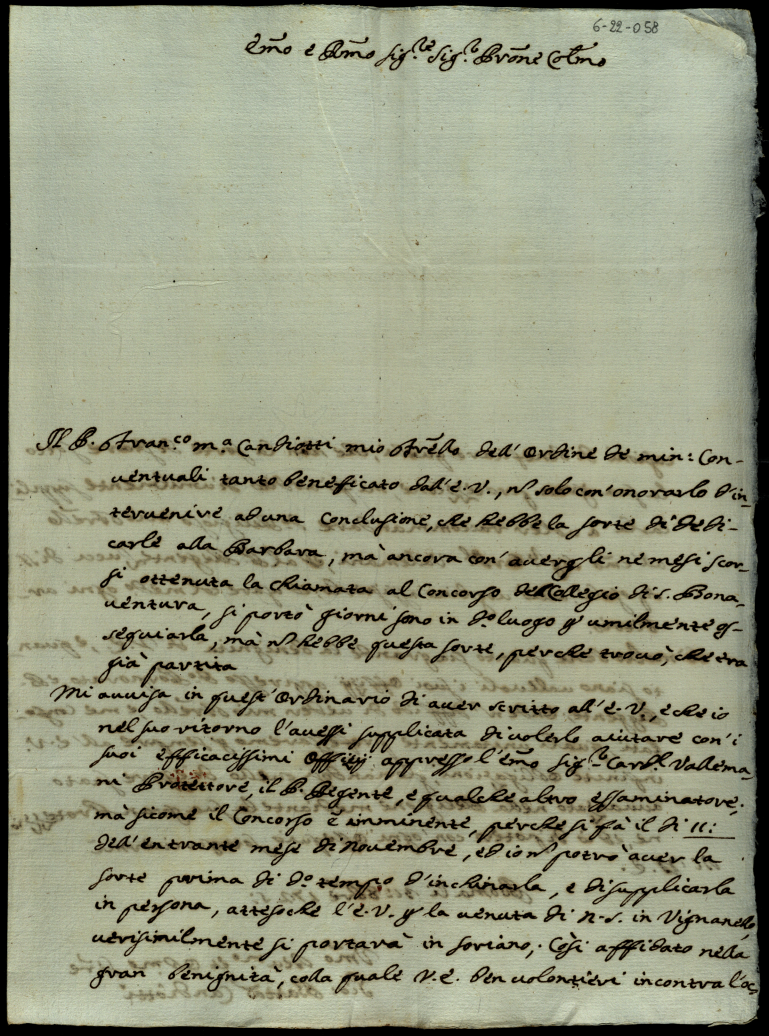 6-22-058
Em̃o e Rm̃o Sig.re Sig.r Prõne Col̃mo
Il P. Fran.co M.a Candiotti mio Frẽllo dell'Ordine de Min: Con-
uentuali tanto beneficato dall'E.V., nõ solo con'onorarlo d'in-
teruenire ad una Conclusione, che hebbe la sorte di dedi-
carle alla Barbara, mà ancora con'auergli ne mesi scor-
si ottenuta la chiamata al Concorso del Collegio di S. Bona-
uentura, si portò giorni sono in d.o luogo p umilmente os-
sequiarla, mà nõ hebbe questa sorte, perche trouò, che era
già partita
Mi auuisa in quest'Ordinario di auer scritto all'E.V., e che io
nel suo ritorno l'auessi supplicata di uolerlo aiutare con'i
suoi efficacissimi Offitij appresso l'Em̃o Sig.r Card.l Vallema-
ni Protettore, il P. Regente, e qualche altro essaminatore;
mà sicome il Concorso è imminente, perche si fà il dì 11:
dell'entrante mese di Nouembre, ed io nõ potrò auer la
sorte prima di d.o tempo d'inchinarla, e di supplicarla
in persona, attesoche l'E.V. p la uenuta di N.S. in Vignanello,
uerisimilmente si portarà in Soriano; Così affidato nella
gran benignità, colla quale V.E. ben uolontieri incontra l'oc-